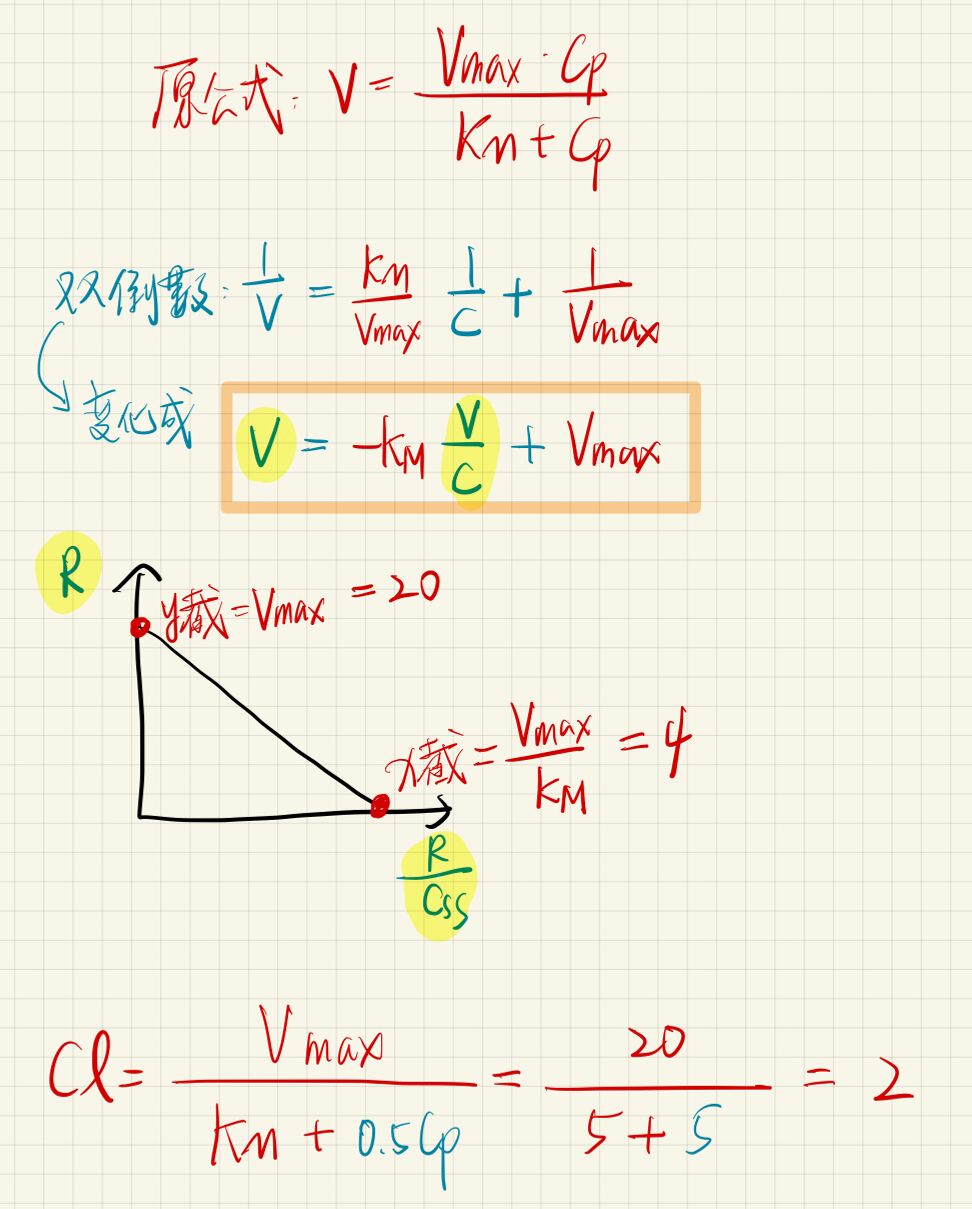 原公式: V = Vmax · Cp / Km + Cp
双倒數: 1/V = KM/Vmax 1/C + 1/Vmax
变化成 V = -KM V/C + Vmax
R
y截 = Vmax = 20
x截 = Vmax/KM = 4
R/Css
Cl = Vmax / Km + 0.5Cp = 20 / 5 + 5 = 2